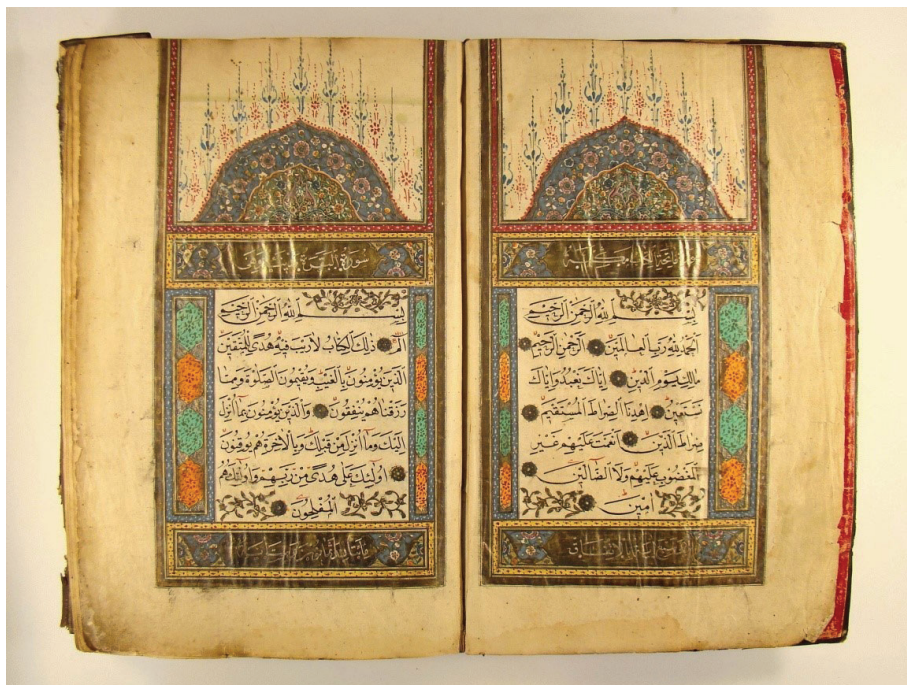 بسم الله الرحمن الرحيم
الحمد لله رب العالمين الرحمن الرحيم
مالك يوم الدين اياك نعبد واياك
نستعين اهدنا الصراط المستقيم
صراط الذين انعمت عليهم غير
المغضوب عليهم ولا الضالين
امين
سورة البقرة
بسم الله الرحمن الرحيم
الم ذلك الكتاب لا ريب فيه هدى للمتقين
الذين يؤمنون بالغيب ويقيمون الصلوة ومما
رزقناهم ينفقون والذين يؤمنون بما انزل
اليك وما انزل من قبلك وبالاخرة هم يوقنون
اولئك على هدى من ربهم واولئك هم
المفلحون